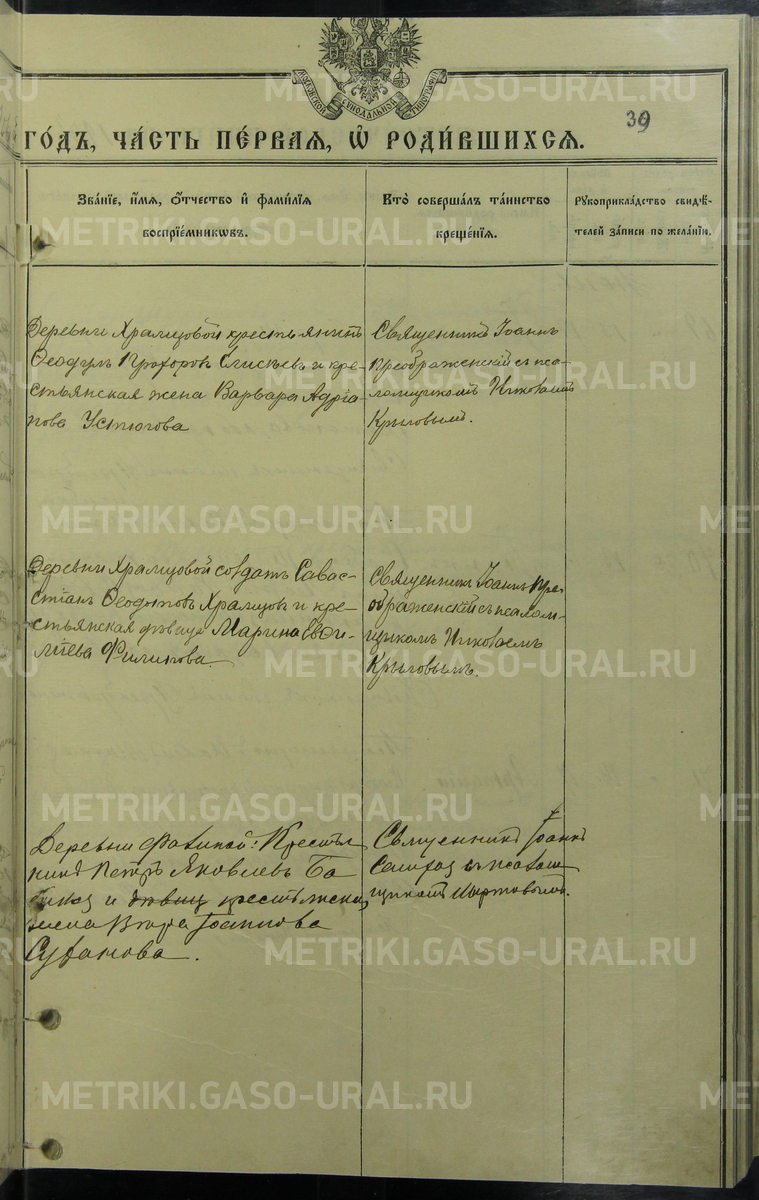 39
ГОДЪ, ЧАСТЬ ПЕРВАЯ, Ѡ РОДИВШИХСЯ.
Званіе, имя, отчество и фамилія
воспріемниковъ.
Кто совершалъ таинство
крещенія.
Рукоприкладство свидѣ-
телей записи по желанію.
Деревни Храмцовой крестьянинъ
Ѳеодулъ Прохоровъ Елисѣевъ и кре-
стьянская жена Варвара Адріа-
нова Устюгова
Священникъ Іоаннъ
Преображенскій съ пса-
ломщикомъ Николаемъ
Крыловымъ.
Деревни Храмцовой солдатъ Савас-
стіан Ѳеодотовъ Храмцовъ и кре-
стьянская дѣвица Марина
Филипова.
Священникъ Іоаннъ Пре-
ображенскій съ псалом-
щикомъ Николаемъ
Крыловымъ.
Деревни Крестья
нинъ Петръ Яковлевъ
и дѣвиц крестьянская
жена Іоаннова
Суханова.
Священникъ Іоаннъ
съ псалом
щикомъ
METRIKI.GASO-URAL.RU